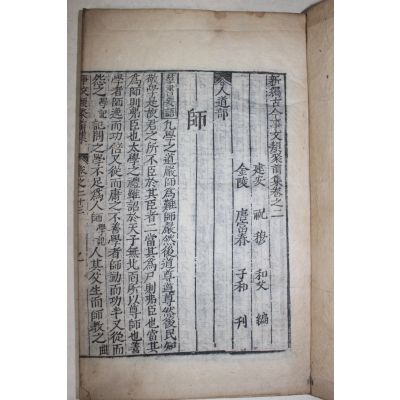 新編古今事文類聚前集卷之二
建安 祝穆 和父 編
金陵 唐富春 子和 刊
人道部
師
羣書要語 凡學之道嚴師爲難師嚴然後道尊道尊然後民知
敬學是故君之所不臣於其臣者二當其爲尸則弗臣也當其
爲師則弗臣也太學之禮雖詔於天子無北面所以尊師也善
學者師逸而功倍又從而庸之不善學者師勤而功半又從而
怨之 學記 記問之學不足爲人師 學記 人其父生而師教之
事文類聚前集 卷之二十三